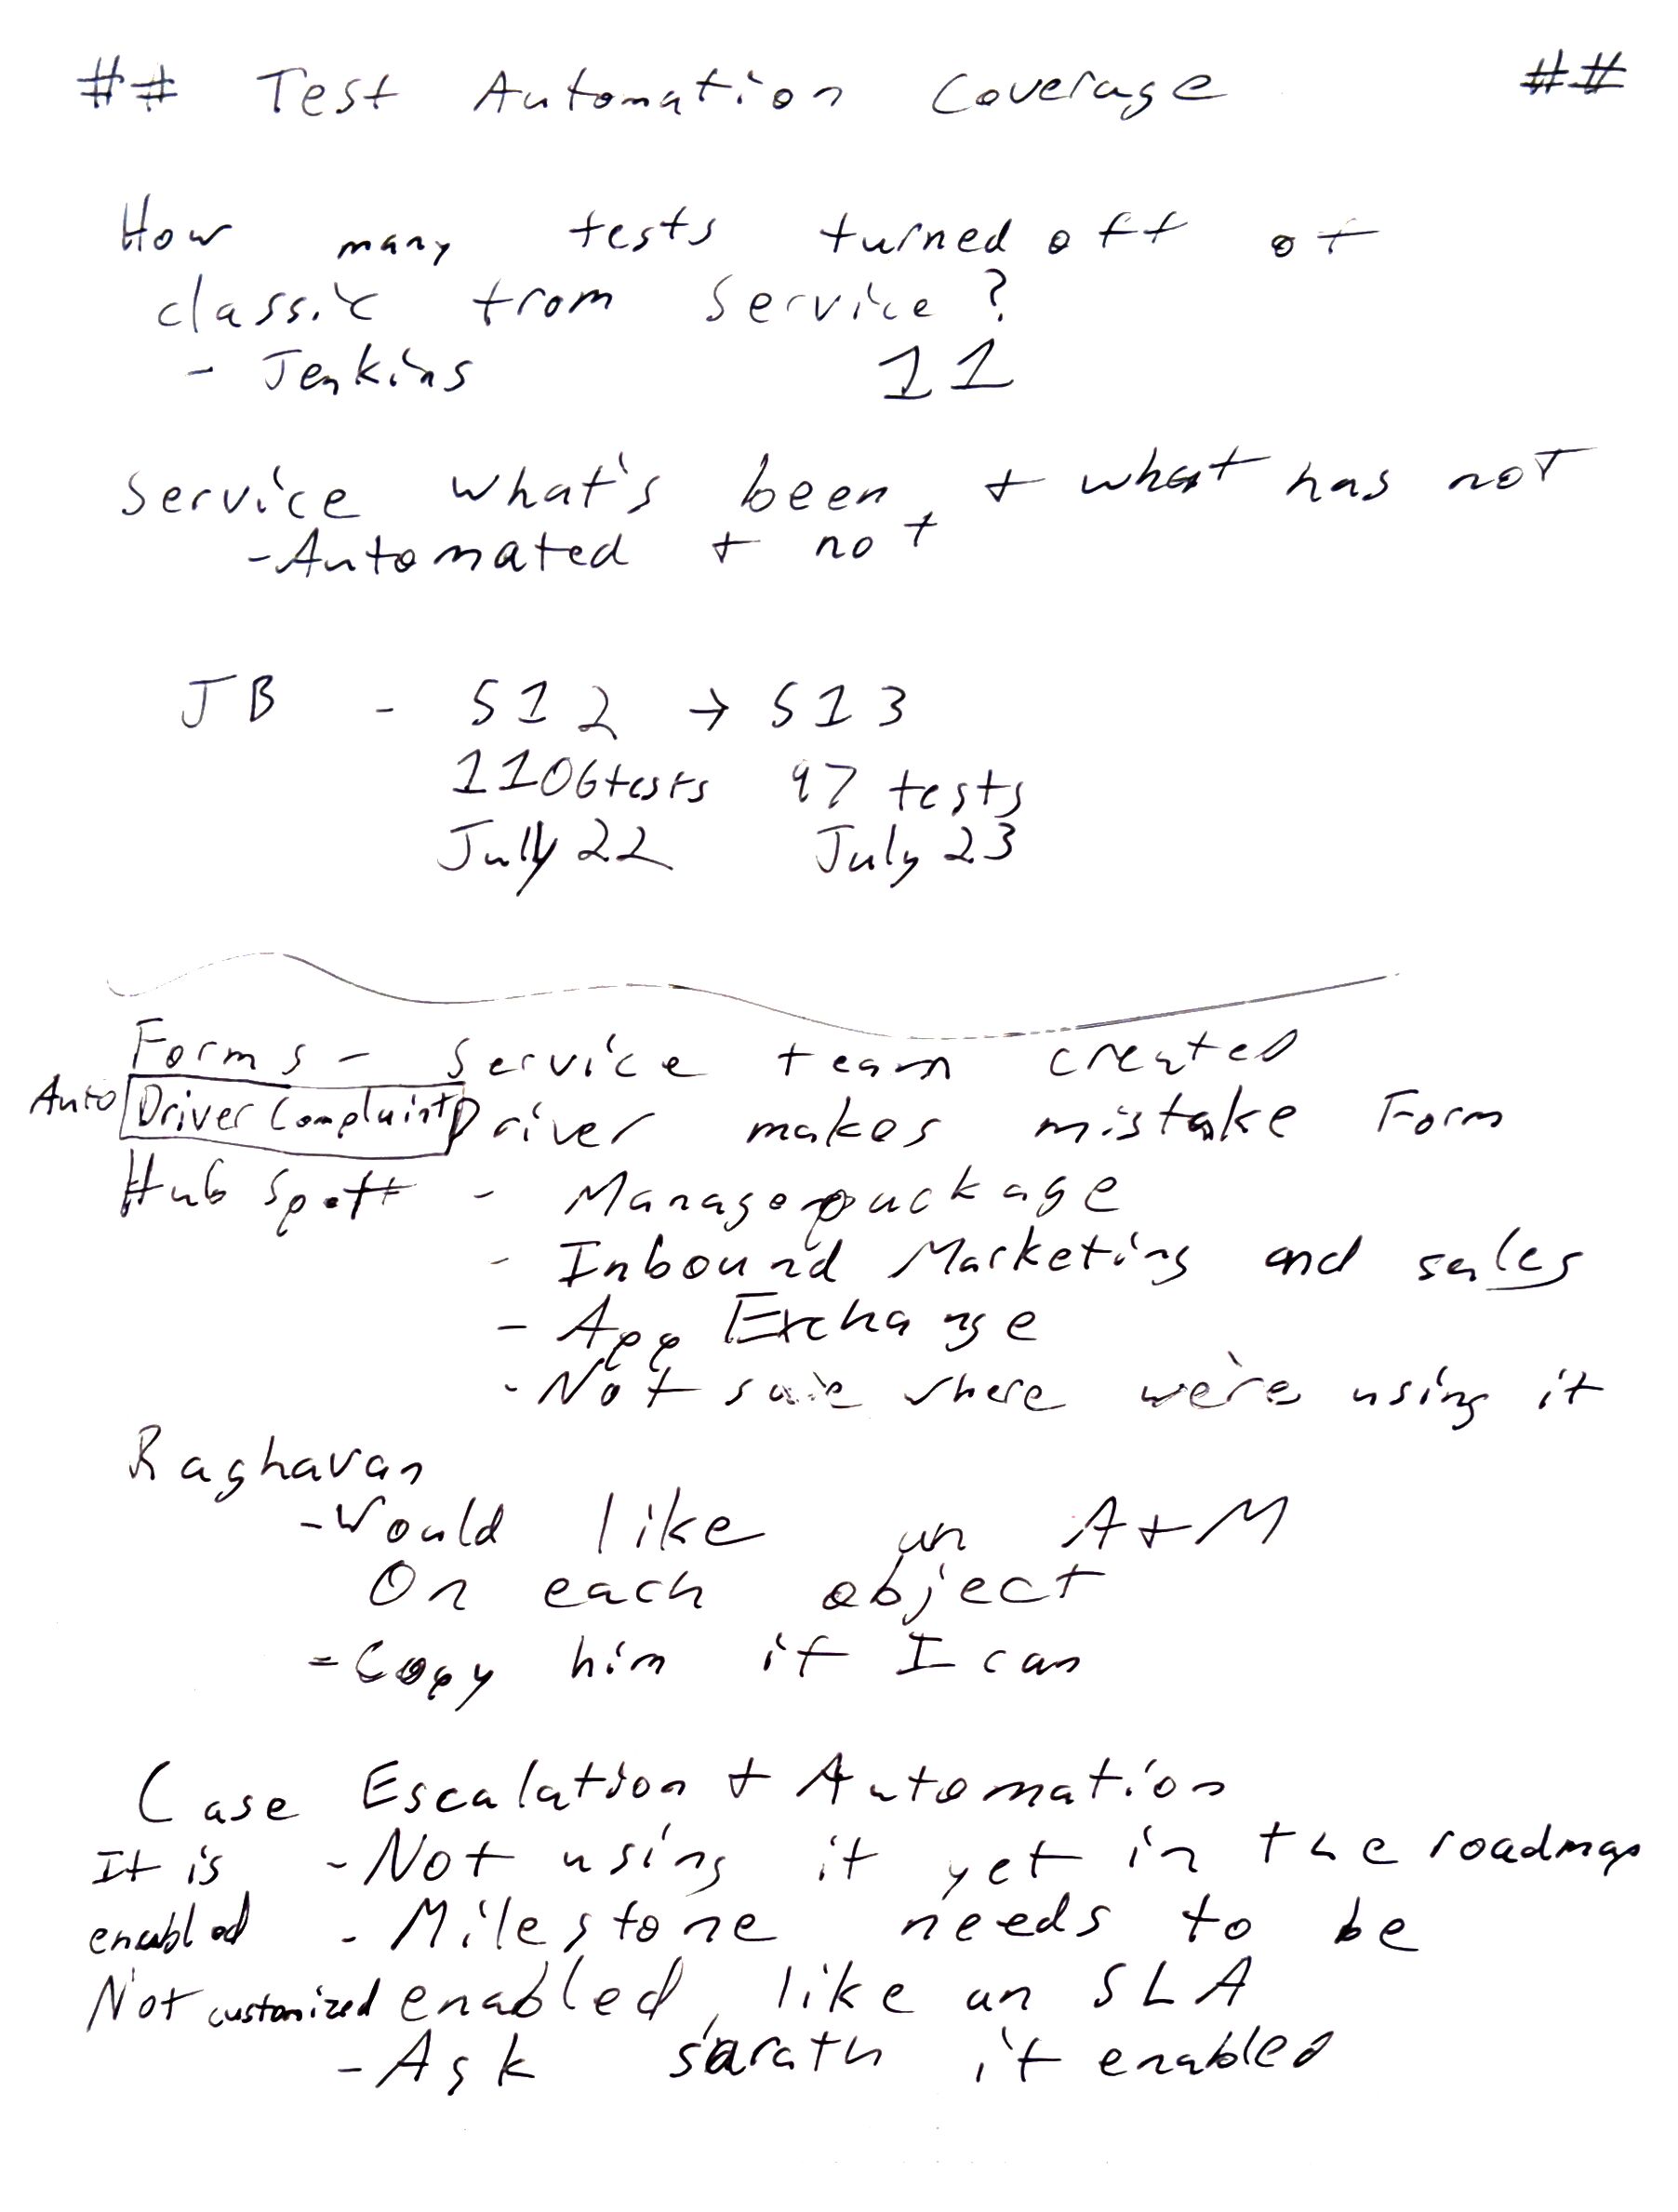 ## Test Automation Coverage ##
How many tests turned off of
classic from service?
- Jenkins 11
Service what's been + what has not
- Automated + not
JB - S12 → S13
1106 tests 97 tests
July 22 July 23
Forms - Service team created
Auto Driver Complaint Driver makes mistake Form
Hub Spott - Manage package
- Inbound Marketing and sales
- App Exchange
- Not sure where we're using it
Raghavan
- Would like an A+M
On each object
- Copy him if I can
Case Escalation + Automation
It is - Not using it yet in the roadmap
enabled - Milestone needs to be
Not customized enabled, like an SLA
- Ask sarath if enabled